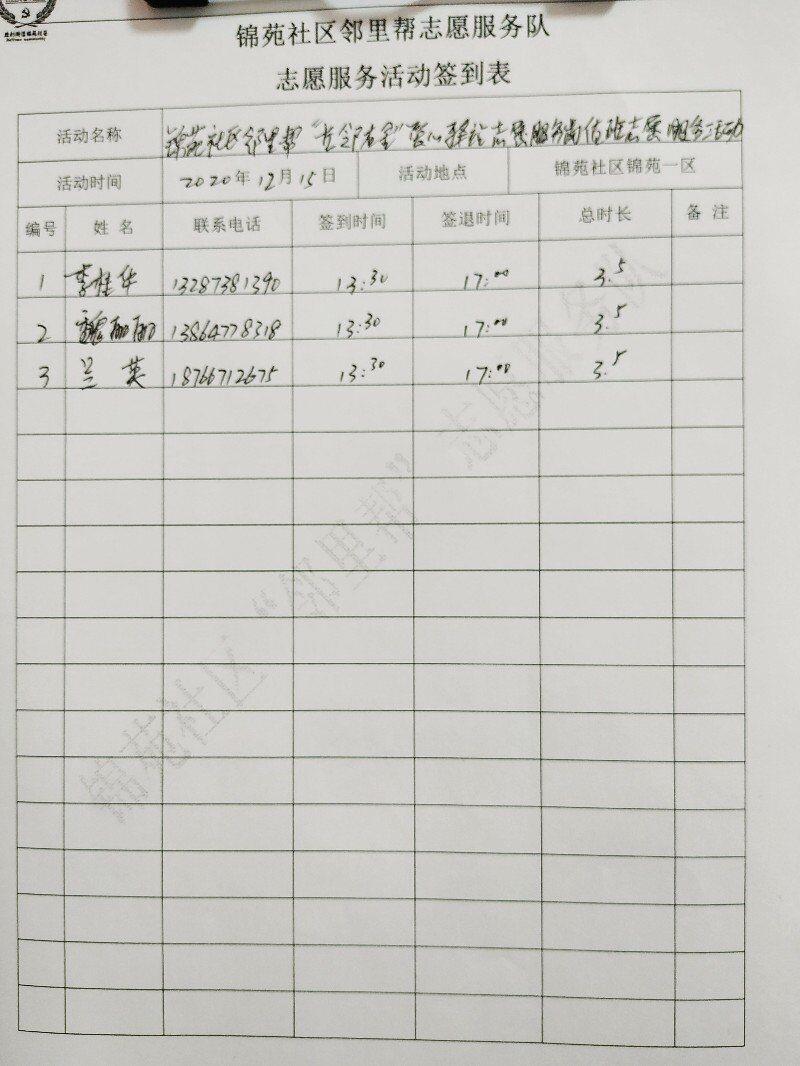 锦苑社区邻里帮志愿服务队
志愿服务活动签到表
活动名称 锦苑社区邻里帮“去邻居家”爱心驿站志愿服务岗值班志愿服务活动
活动时间 2020年12月15日 活动地点 锦苑社区锦苑一区
编号 姓名 联系电话 签到时间 签退时间 总时长 备注
1 李桂华 13287381390 13:30 17:00 3.5
2 魏丽丽 13864778318 13:30 17:00 3.5
3 兰英 18766712675 13:30 17:00 3.5
锦苑社区“邻里帮”志愿服务队